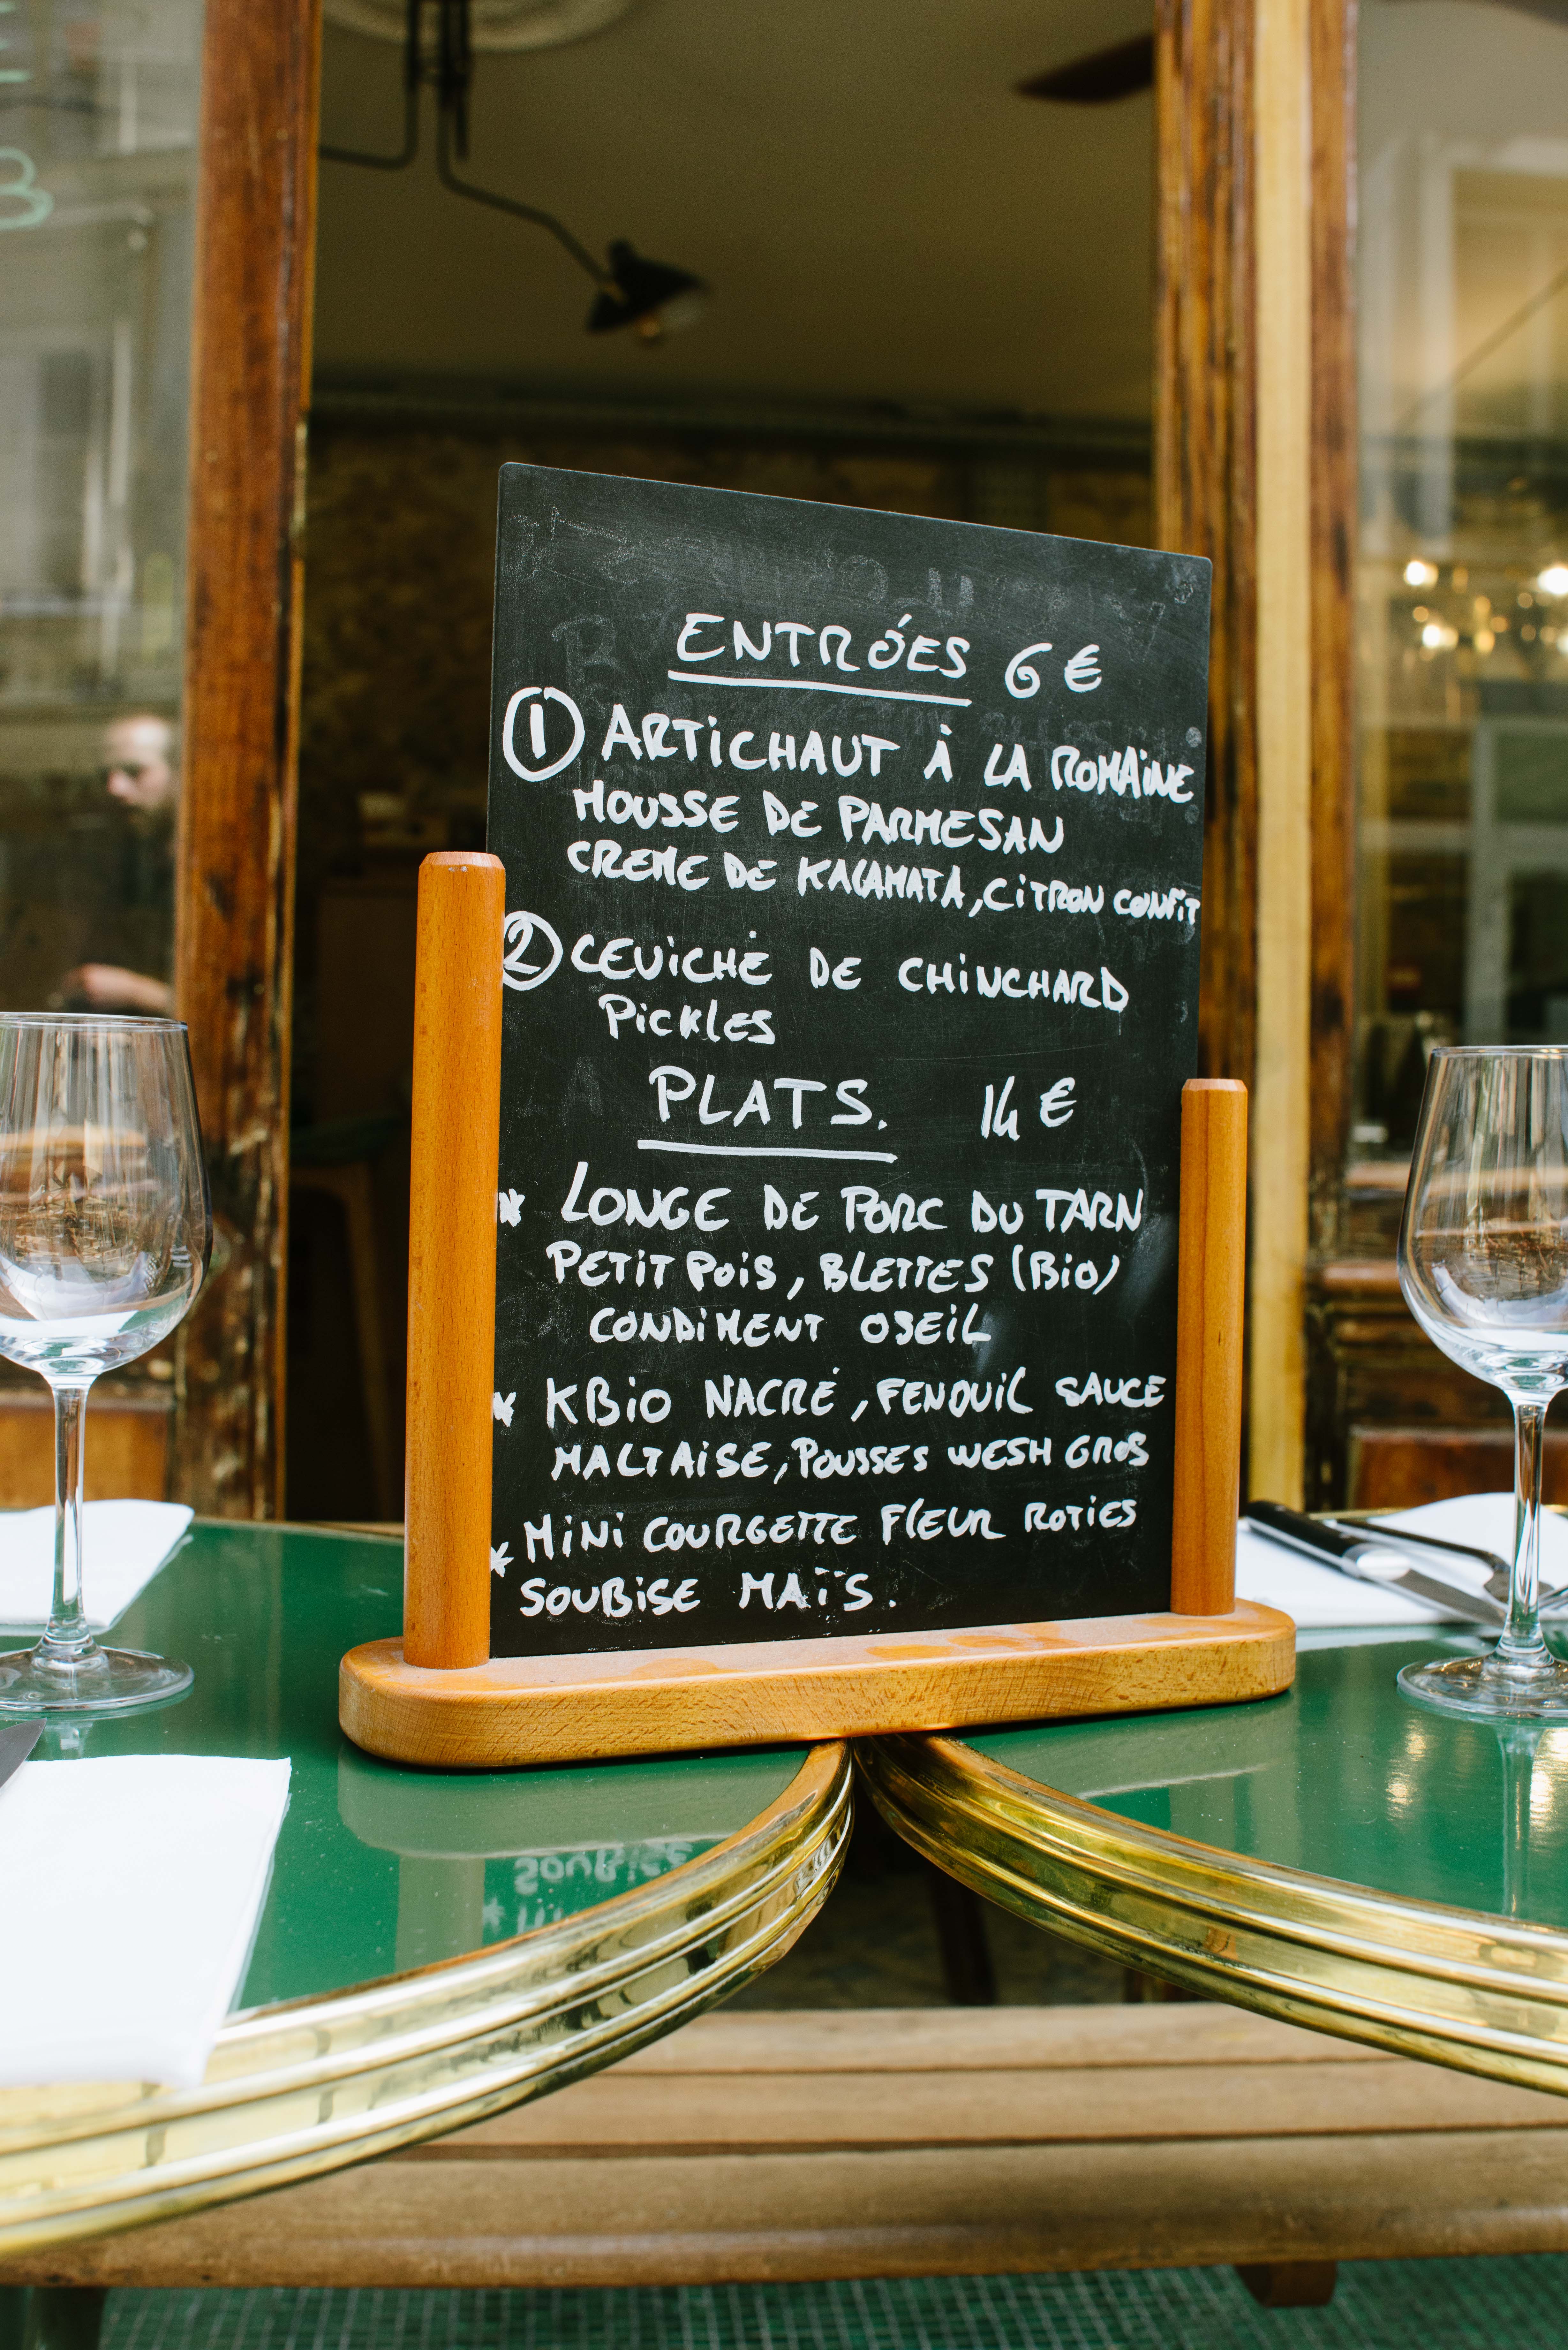 ENTRÉES 6 €
1 ARTICHAUT À LA ROMAINE
MOUSSE DE PARMESAN
CREME DE KALAMATA, CITRON CONFIT
2 CEVICHÉ DE CHINCHARD
PICKLES
PLATS. 14 €
* LONGE DE PORC DU TARN
PETIT POIS, BLETTES (BIO)
CONDIMENT OSEIL
* KBIO NACRÉ, FENOUIL SAUCE
MALTAISE, POUSSES WESH GROS
* MINI COURGETTE FLEUR ROTIES
SOUBISE MAÏS.